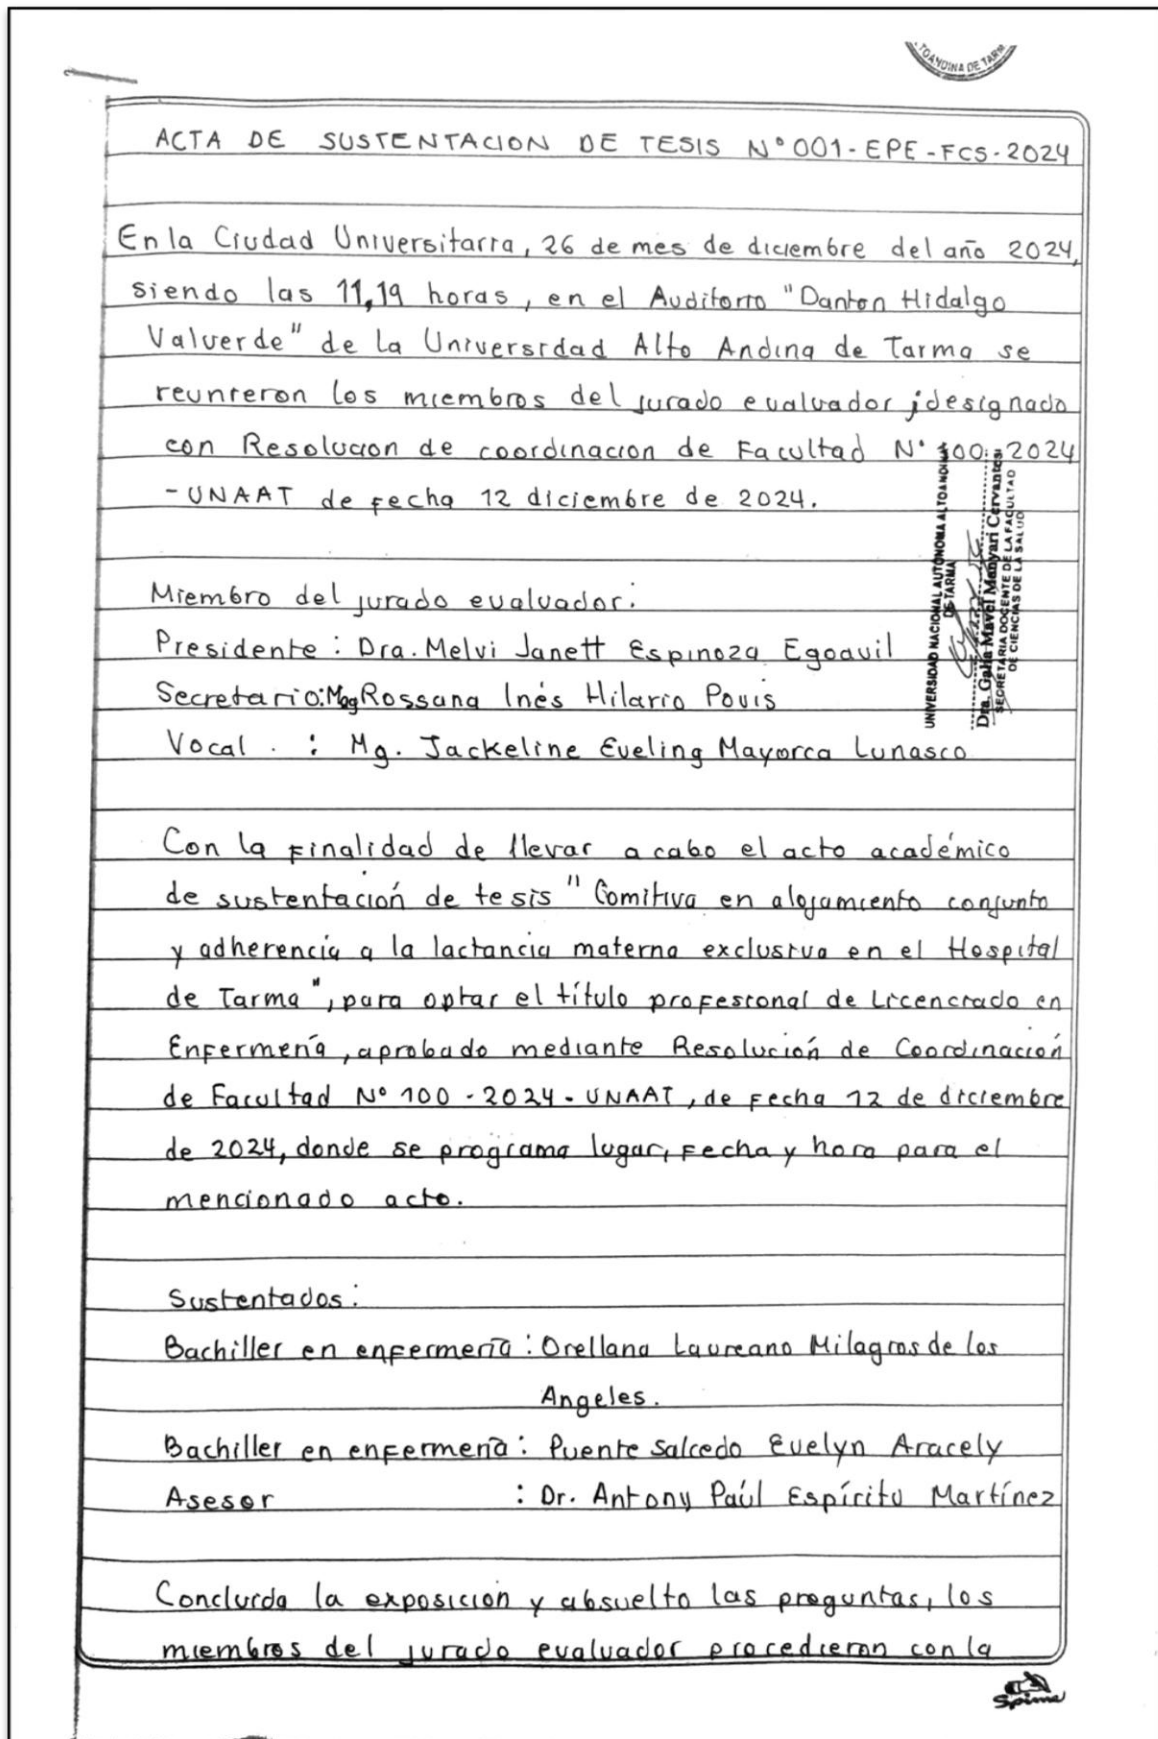 TOANDINA DE TARM
ACTA DE SUSTENTACION DE TESIS N° 001-EPE-FCS-2024
En la Ciudad Universitaria, 26 de mes de diciembre del año 2024,
siendo las 11,19 horas, en el Auditorio "Danton Hidalgo
Valverde" de la Universidad Alto Andina de Tarma se
reunieron los miembros del jurado evaluador ;designado
con Resolucion de coordinacion de Facultad N° 100-2024
-UNAAT de fecha 12 diciembre de 2024.
UNIVERSIDAD NACIONAL AUTÓNOMA ALTOANDINA
DE TARMA
Dra. Galia Mavel Manyari Cervantes
SECRETARIA DOCENTE DE LA FACULTAD
DE CIENCIAS DE LA SALUD
Miembro del jurado evaluador:
Presidente : Dra. Melvi Janett Espinoza Egoavil
Secretario: Mag Rossana Inés Hilario Povis
Vocal . : Mg. Jackeline Eveling Mayorca Lunasco
Con la finalidad de llevar a cabo el acto académico
de sustentación de tesis " Comitiva en alojamiento conjunto
y adherencia a la lactancia materna exclusiva en el Hospital
de Tarma", para optar el título profesional de Licenciado en
Enfermería, aprobado mediante Resolución de Coordinación
de Facultad N° 100-2024-UNAAT, de fecha 12 de diciembre
de 2024, donde se programa lugar, fecha y hora para el
mencionado acto.
Sustentados:
Bachiller en enfermería : Orellana Laureano Milagros de los
Angeles.
Bachiller en enfermería : Puente Salcedo Evelyn Aracely
Asesor : Dr. Antony Paúl Espíritu Martínez
Concluida la exposición y absuelto las preguntas, los
miembros del jurado evaluador procedieron con la
Spime